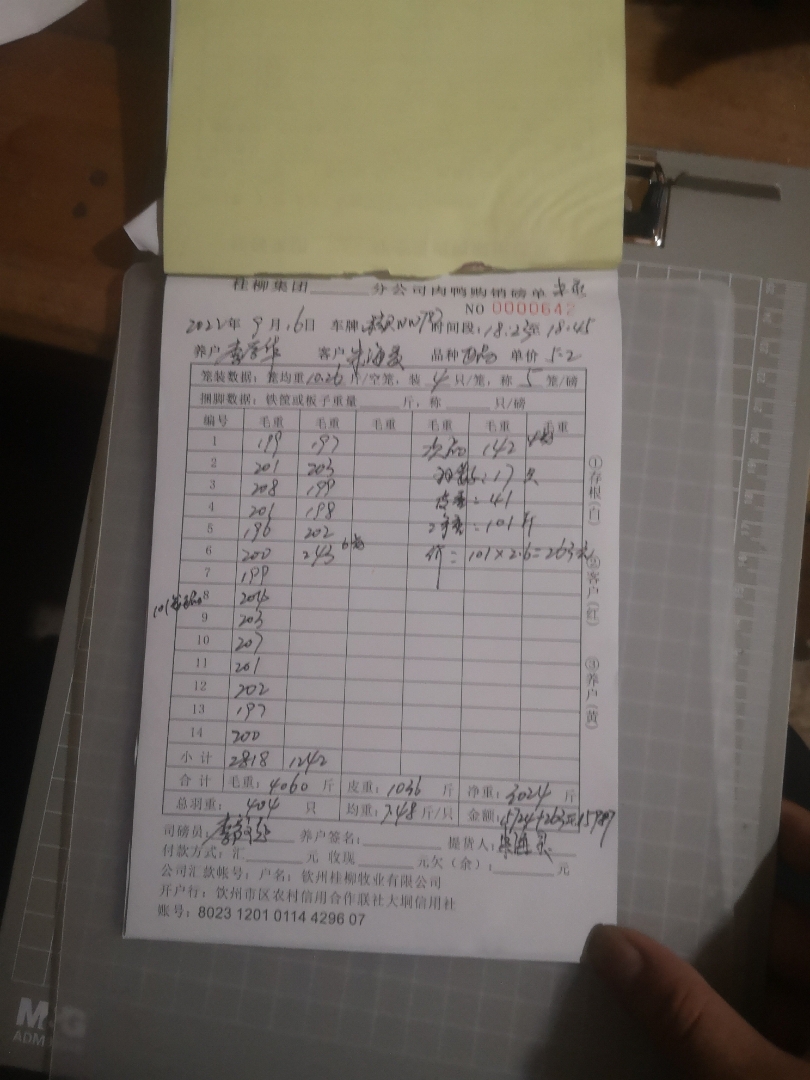 桂柳集团______分公司肉鸭购销磅单
NO 0000642
2022年 9月 6日 车牌 时间段:18:23至18:45
养户 李 华 客户 朱海 品种 单价 5.2
笼装数据:笼均重10.26斤/空笼,装 4 只/笼,称 5 笼/磅
捆脚数据:铁筐或板子重量______斤,称______只/磅
编号 毛重 毛重 毛重 毛重 毛重 毛重
1 199 197 142
2 201 203 17 只
3 208 199 :41
4 201 198 :101斤
5 196 202
6 200 243 6笼 价=101×2.6=263元
7 199
8 204
9 203
10 207
11 201
12 202
13 197
14 200
小计 2818 1242
合计 毛重:4060 斤 皮重:1036 斤 净重:3024 斤
总羽重: 404 只 均重:7.48斤/只 金额:15724+263=15987
司磅员: 养户签名:______ 提货人:朱海
付款方式:汇______元 收现______元欠(余):______元
公司汇款帐号:户名:钦州桂柳牧业有限公司
开户行:钦州市区农村信用合作联社大垌信用社
账号:8023 1201 0114 4296 07
①存根(白)
②客户(红)
③养户(黄)
M&G